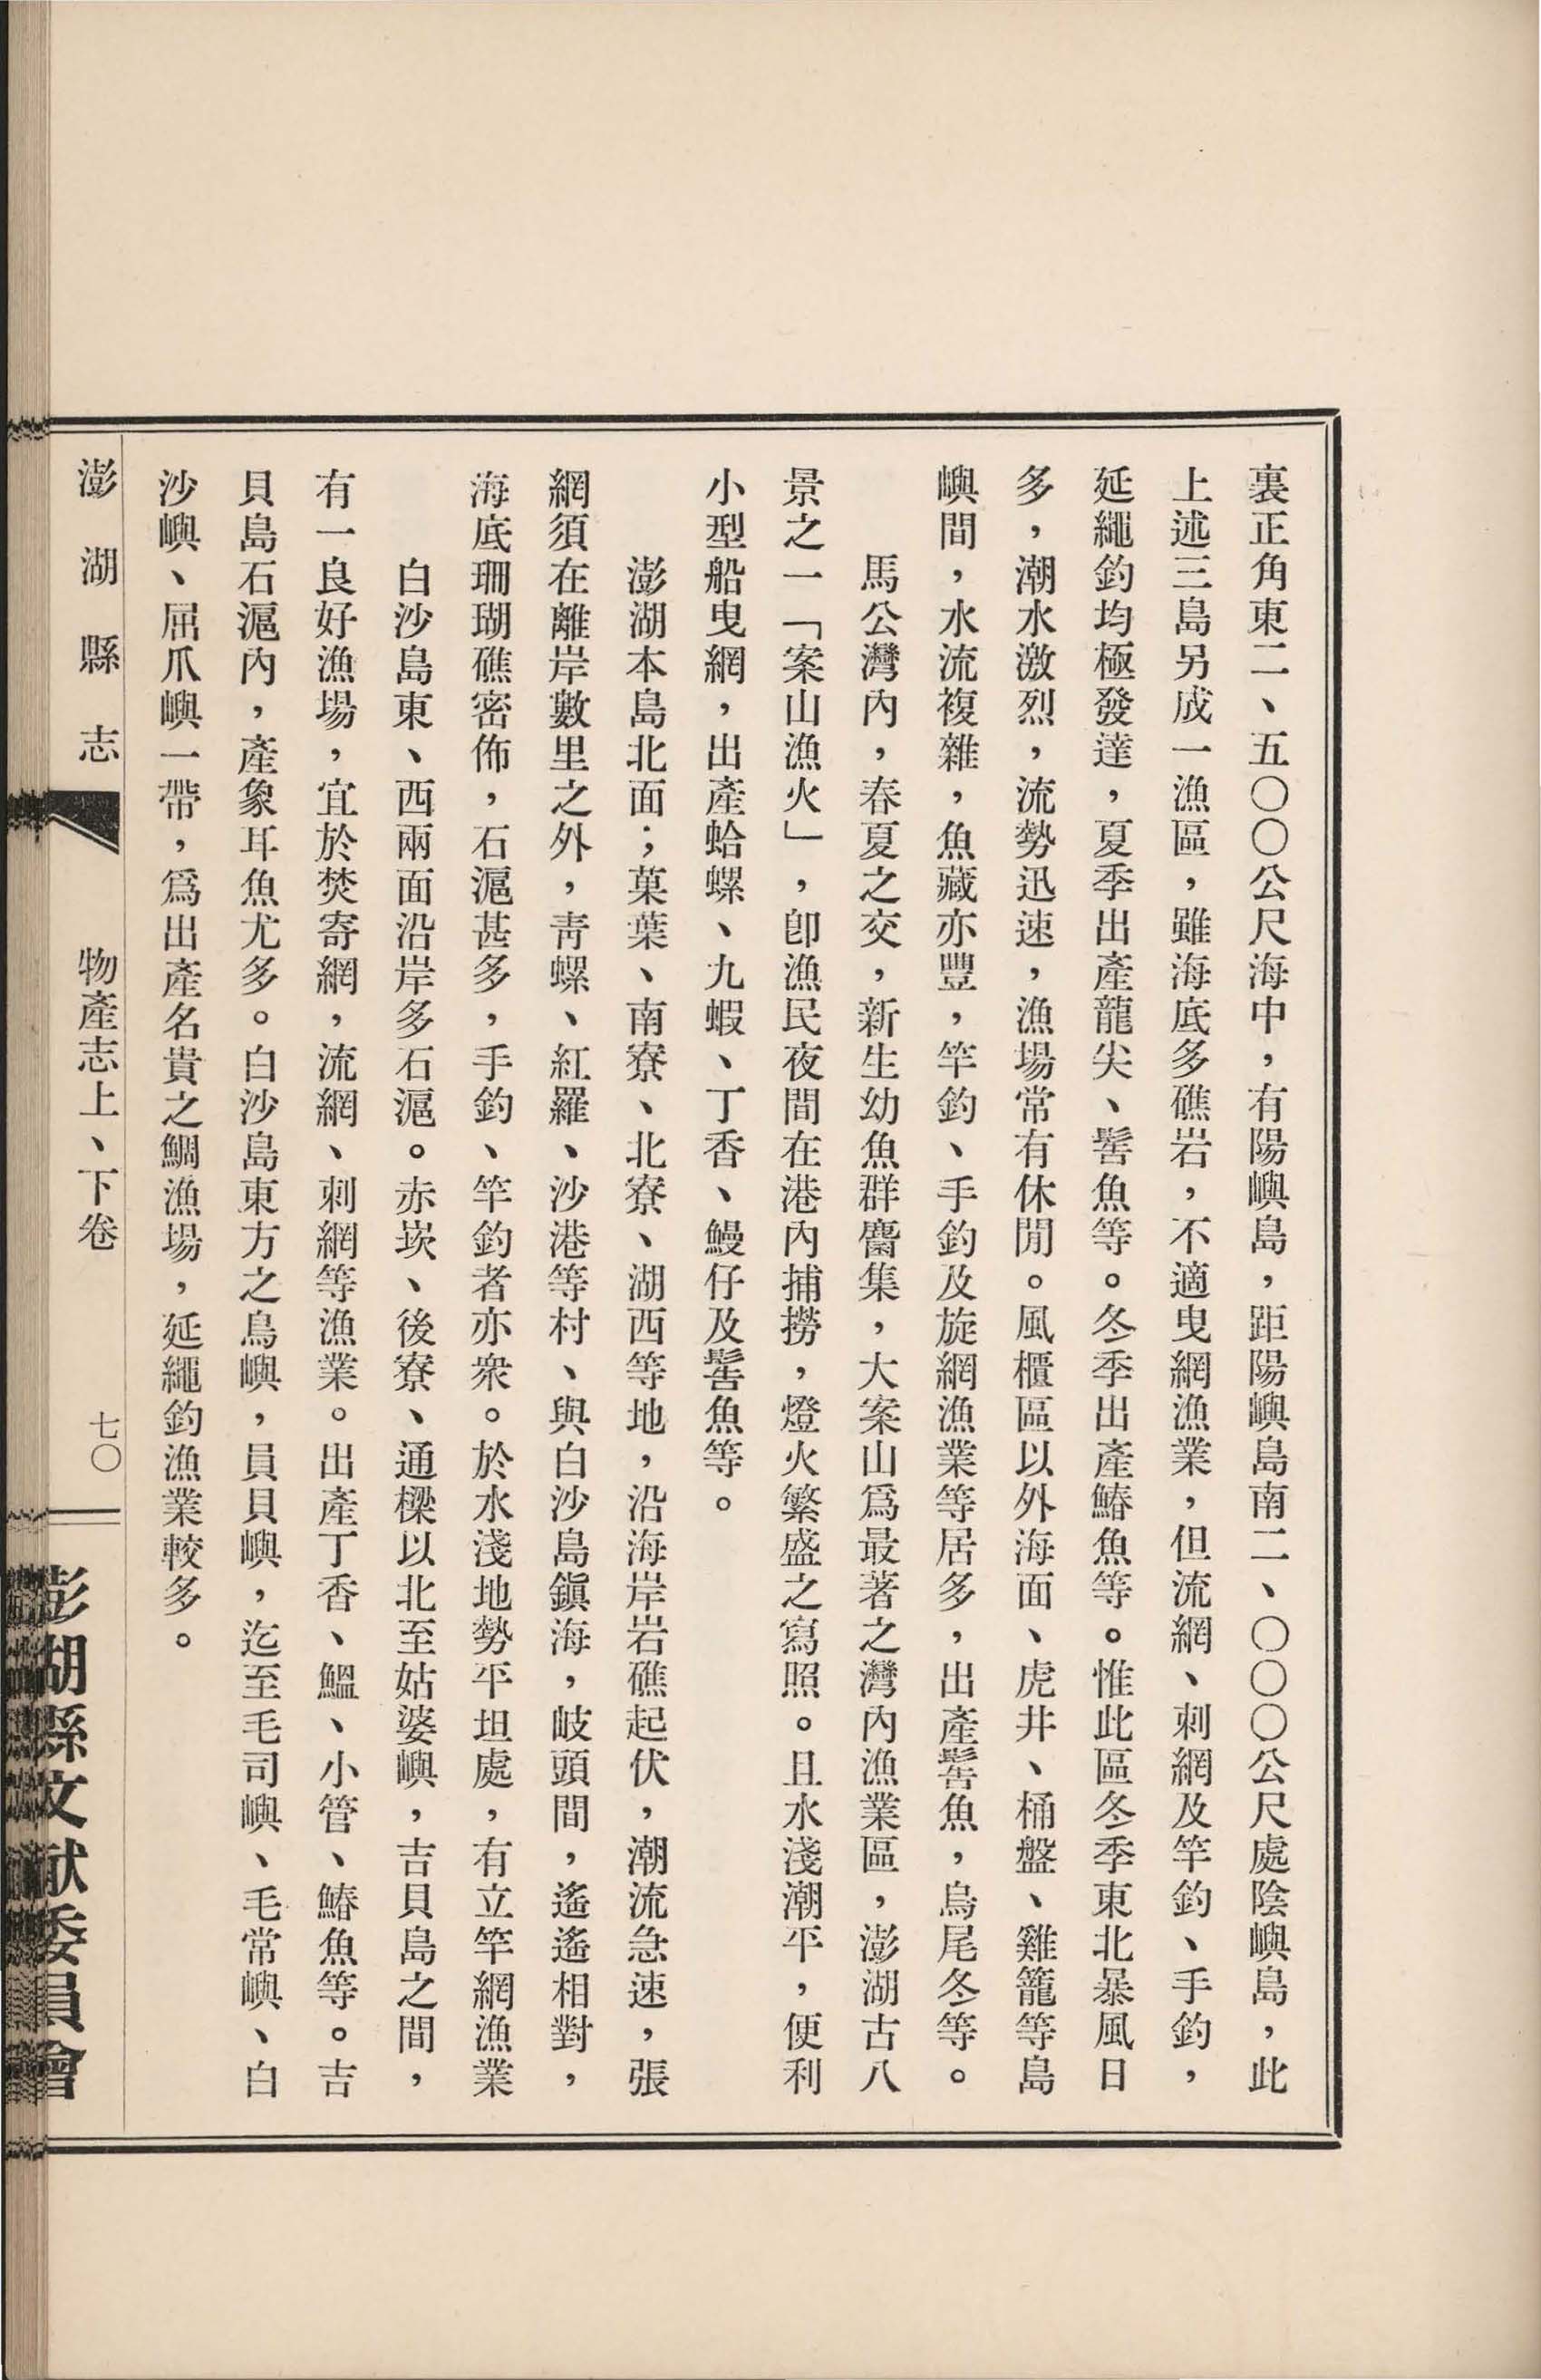 裏正角東二、五〇〇公尺海中，有陽嶼島，距陽嶼島南二、〇〇〇公尺處陰嶼島，此
上述三島另成一漁區，雖海底多礁岩，不適曳網漁業，但流網、刺網及竿釣、手釣，
延繩釣均極發達，夏季出產龍尖、髻魚等。冬季出產鰆魚等。惟此區冬季東北暴風日
多，潮水激烈，流勢迅速，漁場常有休閒。風櫃區以外海面、虎井、桶盤、雞籠等島
嶼間，水流複雜，魚藏亦豐，竿釣、手釣及旋網漁業等居多，出產髻魚，烏尾冬等。
馬公灣內，春夏之交，新生幼魚群麕集，大案山爲最著之灣內漁業區，澎湖古八
景之一「案山漁火」，卽漁民夜間在港內捕撈，燈火繁盛之寫照。且水淺潮平，便利
小型船曳網，出產蛤螺、九蝦、丁香、鰻仔及髻魚等。
澎湖本島北面；菓葉、南寮、北寮、湖西等地，沿海岸岩礁起伏，潮流急速，張
網須在離岸數里之外，靑螺、紅羅、沙港等村、與白沙島鎭海，岐頭間，遙遙相對，
海底珊瑚礁密佈，石滬甚多，手釣、竿釣者亦衆。於水淺地勢平坦處，有立竿網漁業
白沙島東、西兩面沿岸多石滬。赤崁、後寮、通樑以北至姑婆嶼，吉貝島之間，
有一良好漁場，宜於焚寄網，流網、刺網等漁業。出產丁香、鰮、小管、鰆魚等。吉
貝島石滬內，產象耳魚尤多。白沙島東方之鳥嶼，員貝嶼，迄至毛司嶼、毛常嶼、白
沙嶼、屈爪嶼一帶，爲出產名貴之鯛漁場，延繩釣漁業較多。
澎湖縣志　物產志上、下卷　七〇
澎湖縣文献委員會